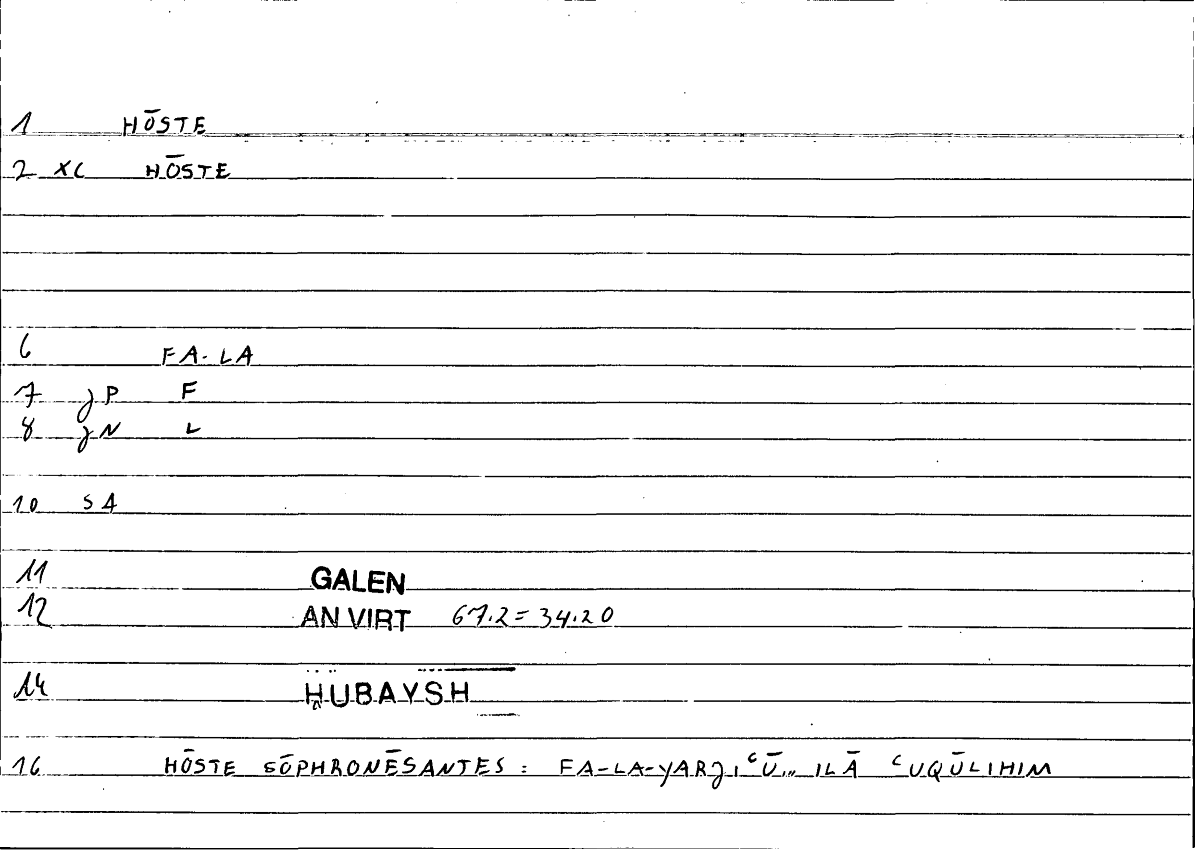 1 HŌSTE
2 XC HŌSTE
6 FA-LA
7 jP F
8 jN L
10 SA
11 GALEN
12 AN VIRT 67.2 = 34.20
14 ḤUBAYSH
16 HŌSTE SŌPHRONĒSANTES : FA-LA-YARJIʿŪ... ILĀ ʿUQŪLIHIM